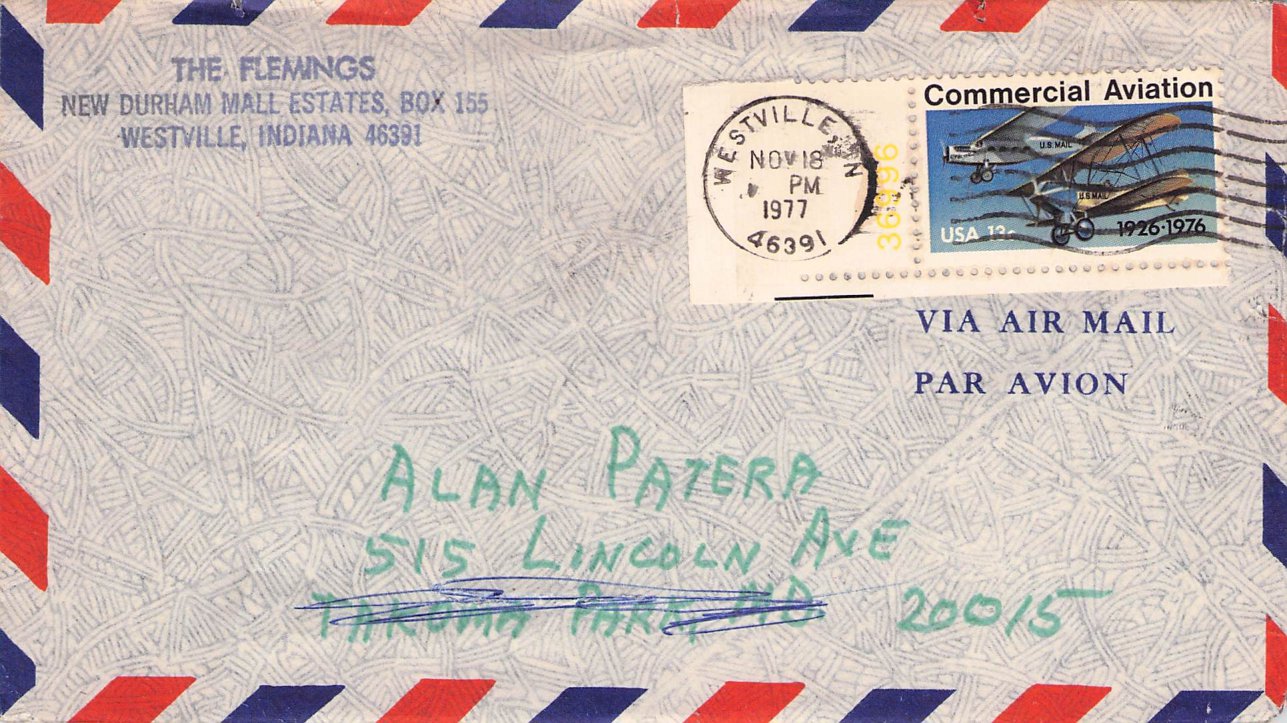 THE FLEMINGS
NEW DURHAM MALL ESTATES, BOX 155
WESTVILLE, INDIANA 46391
WESTVILLE, IN
NOV 18
PM
1977
46391
36996
Commercial Aviation
U.S. MAIL
U.S. MAIL
USA 13c
1926-1976
VIA AIR MAIL
PAR AVION
ALAN PATERA
515 LINCOLN AVE
TAKOMA PARK, MD. 20015